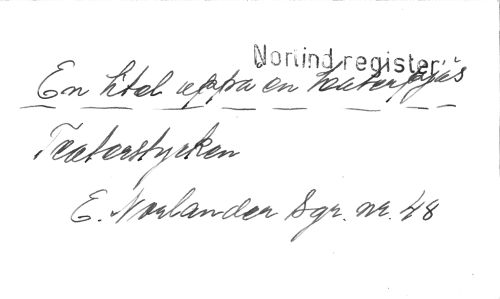 Norlind register.
En titel uppå en teaterpjäs
Teaterstycken
E. Norlander Sgr. nr. 48